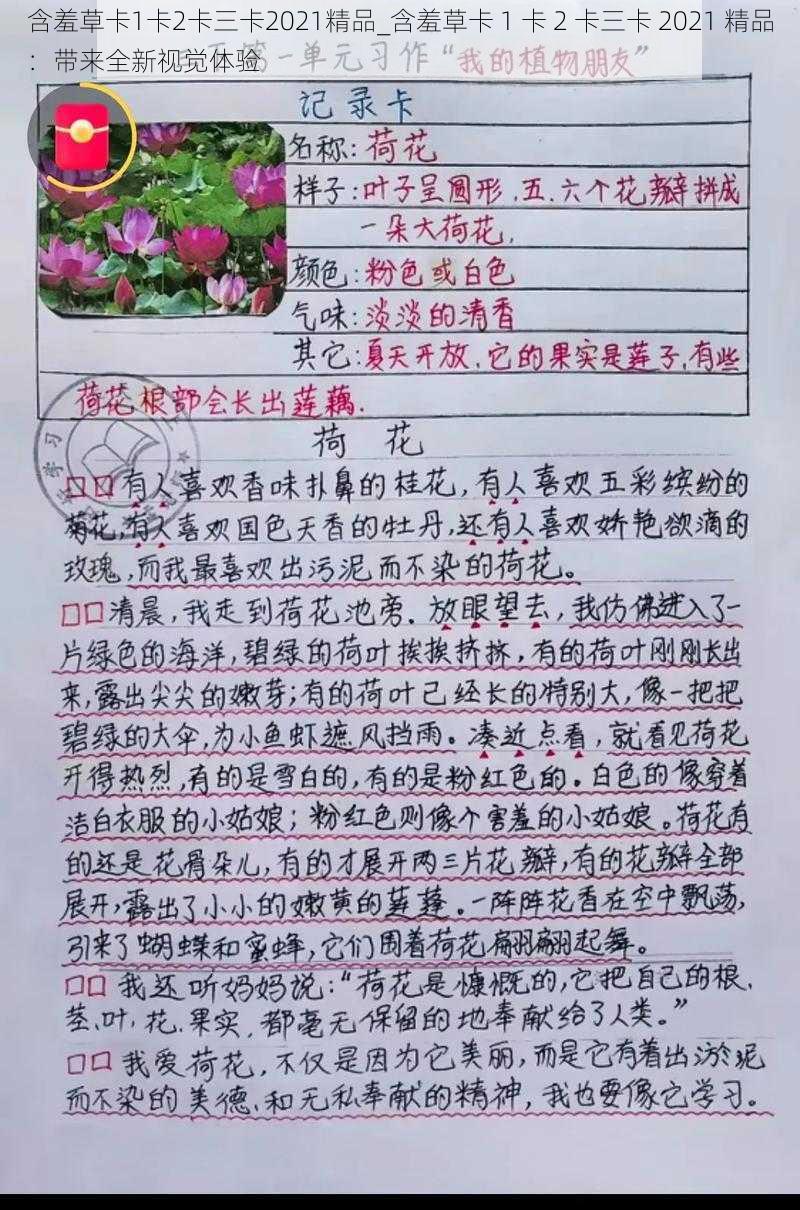 含羞草卡1卡2卡三卡2021精品_含羞草卡 1 卡 2 卡三卡 2021 精品
：带来全新视觉体验
第一单元习作“我的植物朋友”
记录卡
名称：荷花
样子：叶子呈圆形，五、六个花瓣拼成
一朵大荷花，
颜色：粉色或白色
气味：淡淡的清香
其它：夏天开放，它的果实是莲子，有些
荷花根部会长出莲藕．
荷 花
有人喜欢香味扑鼻的桂花，有人喜欢五彩缤纷的
菊花，有人喜欢国色天香的牡丹，还有人喜欢娇艳欲滴的
玫瑰，而我最喜欢出污泥而不染的荷花。
清晨，我走到荷花池旁．放眼望去，我仿佛进入了一
片绿色的海洋，碧绿的荷叶挨挨挤挤，有的荷叶刚刚长出
来，露出尖尖的嫩芽；有的荷叶已经长的特别大，像一把把
碧绿的大伞，为小鱼虾遮风挡雨。凑近点看，就看见荷花
开得热烈，有的是雪白的，有的是粉红色的。白色的像穿着
洁白衣服的小姑娘；粉红色则像个害羞的小姑娘。荷花有
的还是花骨朵儿，有的才展开两三片花瓣，有的花瓣全部
展开，露出了小小的嫩黄的莲蓬。一阵阵花香在空中飘荡，
引来了蝴蝶和蜜蜂，它们围着荷花翩翩起舞。
我还听妈妈说：“荷花是慷慨的，它把自己的根、
茎、叶，花．果实．都毫无保留的地奉献给了人类。”
我爱荷花，不仅是因为它美丽，而是它有着出淤泥
而不染的美德、和无私奉献的精神，我也要像它学习。